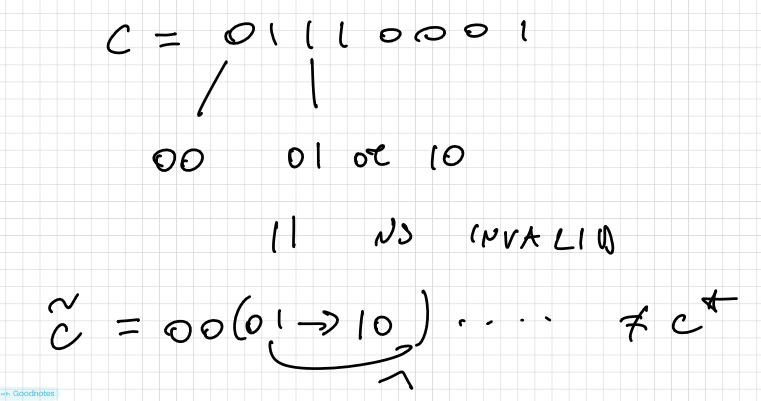 C = 01110001
00 01 or 10
11 NS INVALID
c̃ = 00(01→10) ···· ≠ c*
with Goodnotes